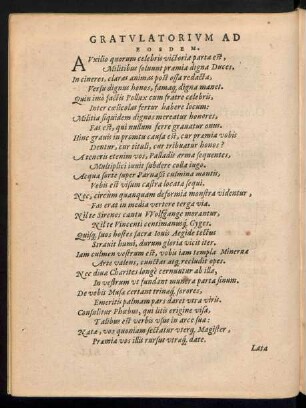 GRATVLATORIVM AD
EOSDEM.
AVxilio quorum celebris victoria parta est,
Militibus soluunt præmia digna Duces.
In cineres, claras animas post ossa redacta,
Versu dignus honos, famaq́; digna manet.
Quin imò factis Pollux cum fratre celebris,
Inter cælicolas fertur habere locum:
Militia siquidem dignos mereatur honores,
Fas est, qui nullum ferre grauatur onus.
Hinc grauis in promtu causa est, cur præmia vobis
Dentur, cur tituli, cur tribuatur honos?
A teneris etenim vos, Palladis arma sequentes,
Multiplici iuuit subdere colla iugo.
Atqua sorte super Parnassi culmina montis,
Vobis est visum castra locata sequi.
Nec, circum quanquam deformia monstra videntur,
Fas erat in media vertere terga via.
Nil te Sirenes cantu VVolfgange morantur,
Nil te Vincenti centimanusq́; Gyges.
Quisq́; suos hostes sacra Iouis Aegide tectus
Strauit humi, durum gloria vicit iter.
Iam culmen vestrum est, vobis iam templa Minerua
Arte valens, cunctas atq́; recludit opes.
Nec diuæ Charites longè cernuntur ab illa,
In vestrum vt fundant munera parta sinum.
De vobis Musæ certant trinaq́; sorores,
Emeritis palmam pars daret vtra viris.
Consulitur Phœbus, qui litis origine visa,
Talibus est verbis vsus in arce sua:
Natæ, vos quoniam iactatur vterq́; Magister,
Præmia vos illis rursus vtraq́; date.
Lata